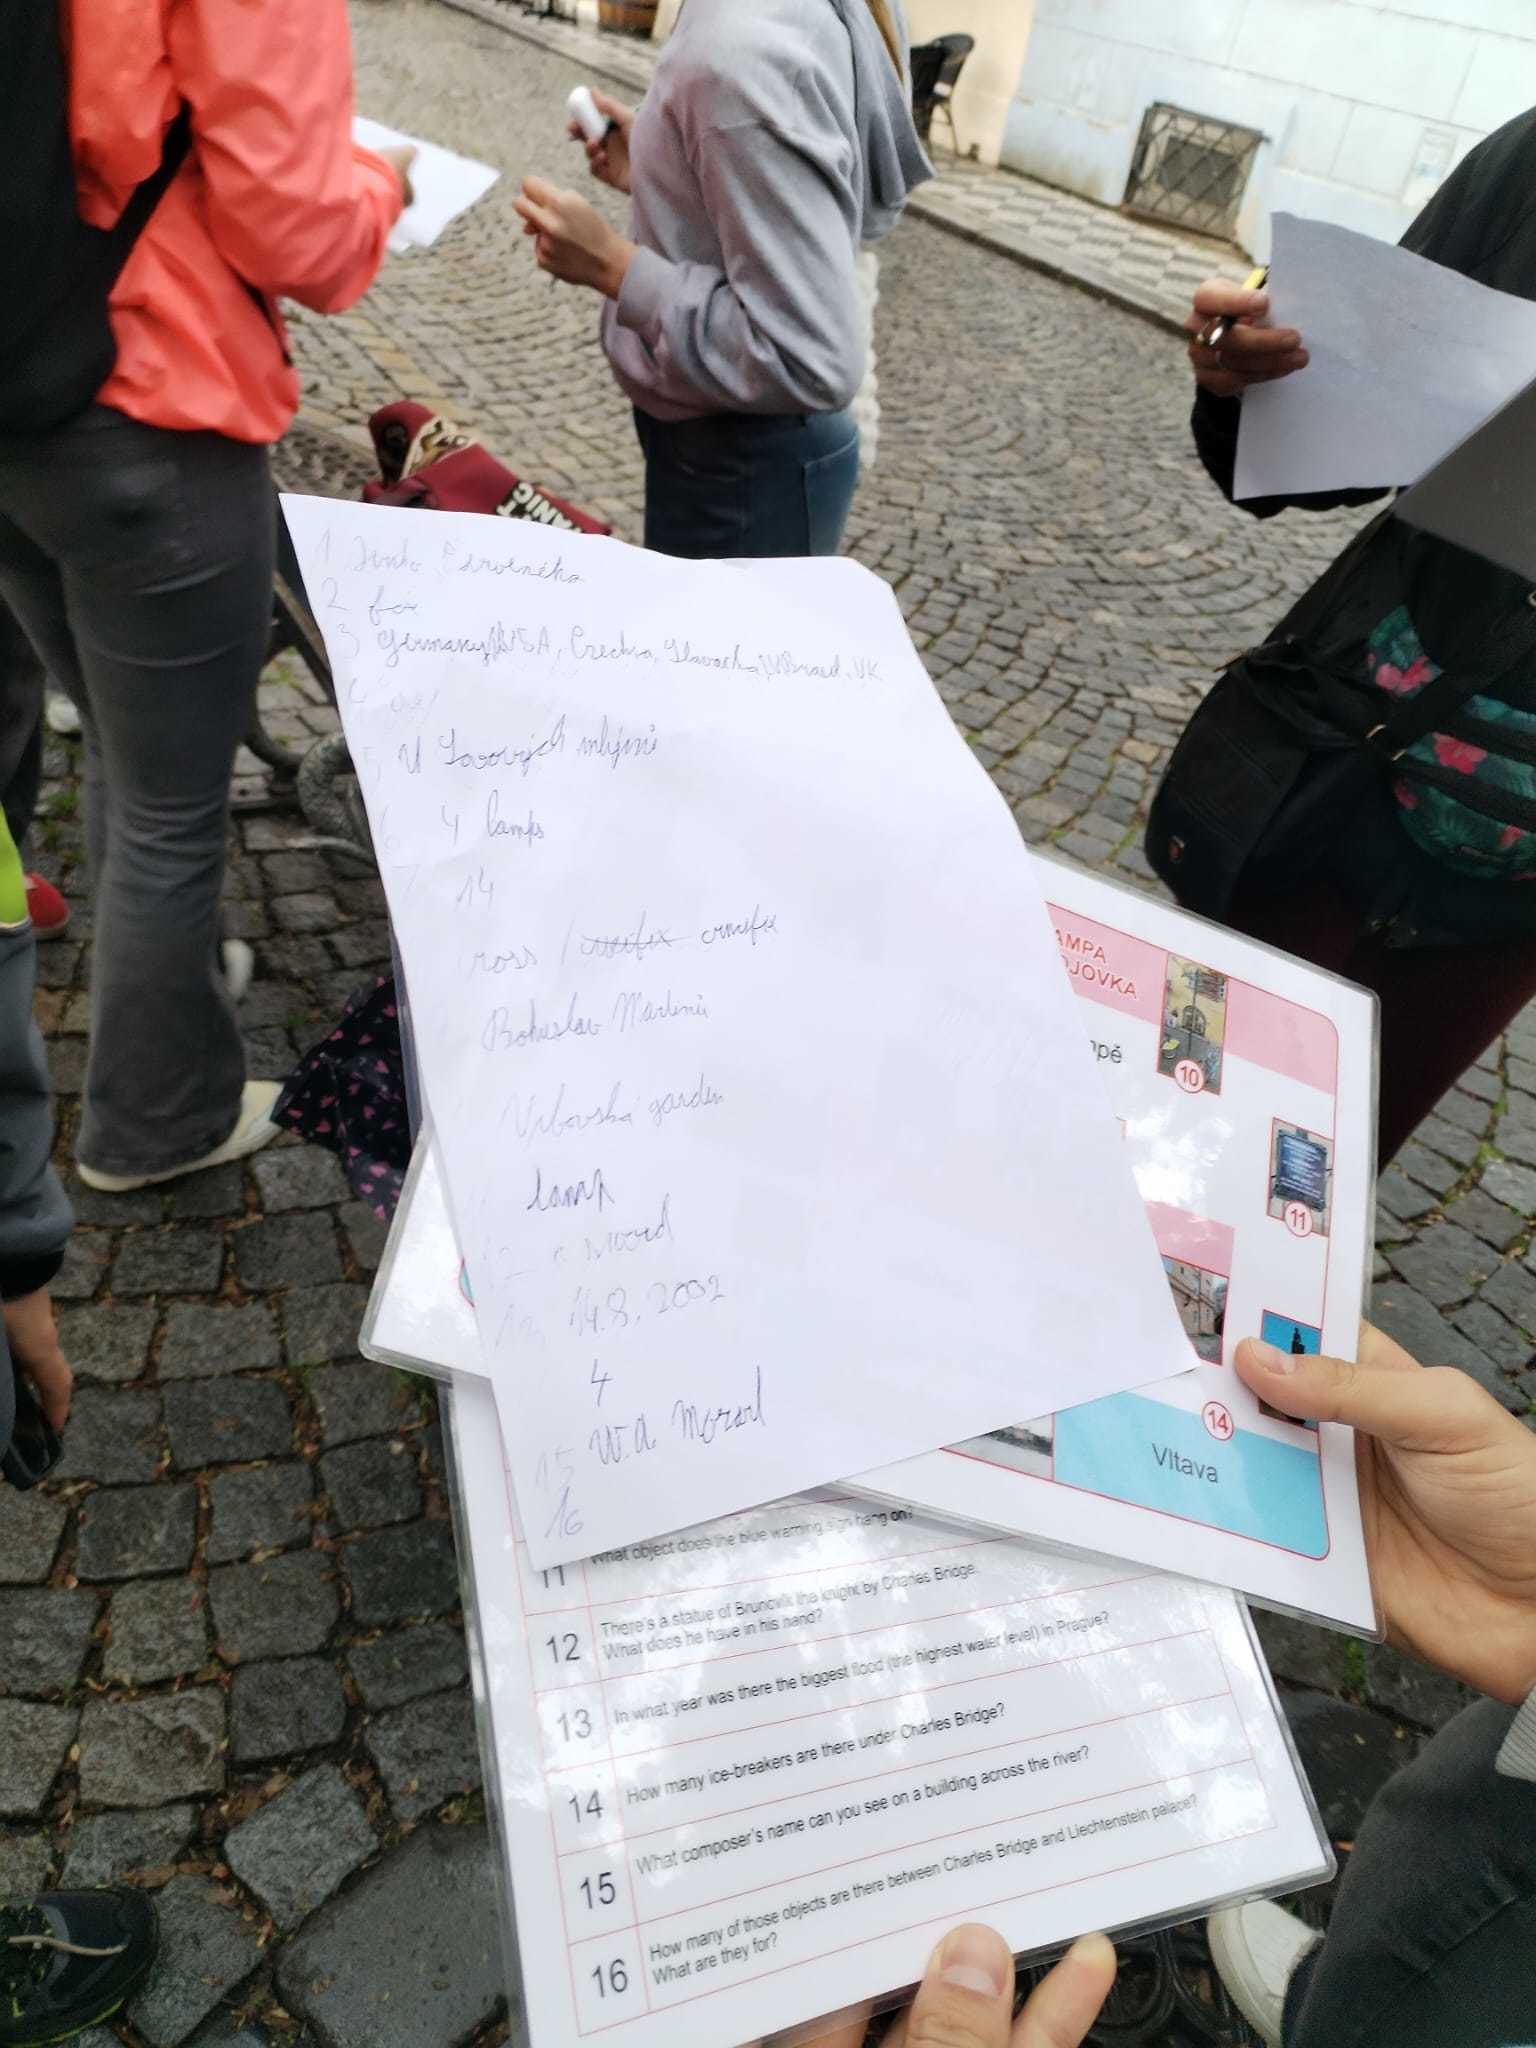 1 Červeného
2 fox
3 Germany, USA, Czechia, Slovakia, UK
4
5 U Sovových mlýnů
6 4 lamps
7 14
ross / crucifix
Bohuslav Martinů
Vrbovská garden
lamp
12 sword
13 14.8.2002
4
15 W.A. Mozart
16
AMPA
OJOVKA
mpě
10
11
14
Vltava
11 What object does the blue warning sign hang on?
12 There's a statue of Bruncvík the knight by Charles Bridge.
What does he have in his hand?
13 In what year was there the biggest flood (the highest water level) in Prague?
14 How many ice-breakers are there under Charles Bridge?
15 What composer's name can you see on a building across the river?
16 How many of those objects are there between Charles Bridge and Liechtenstein palace?
What are they for?